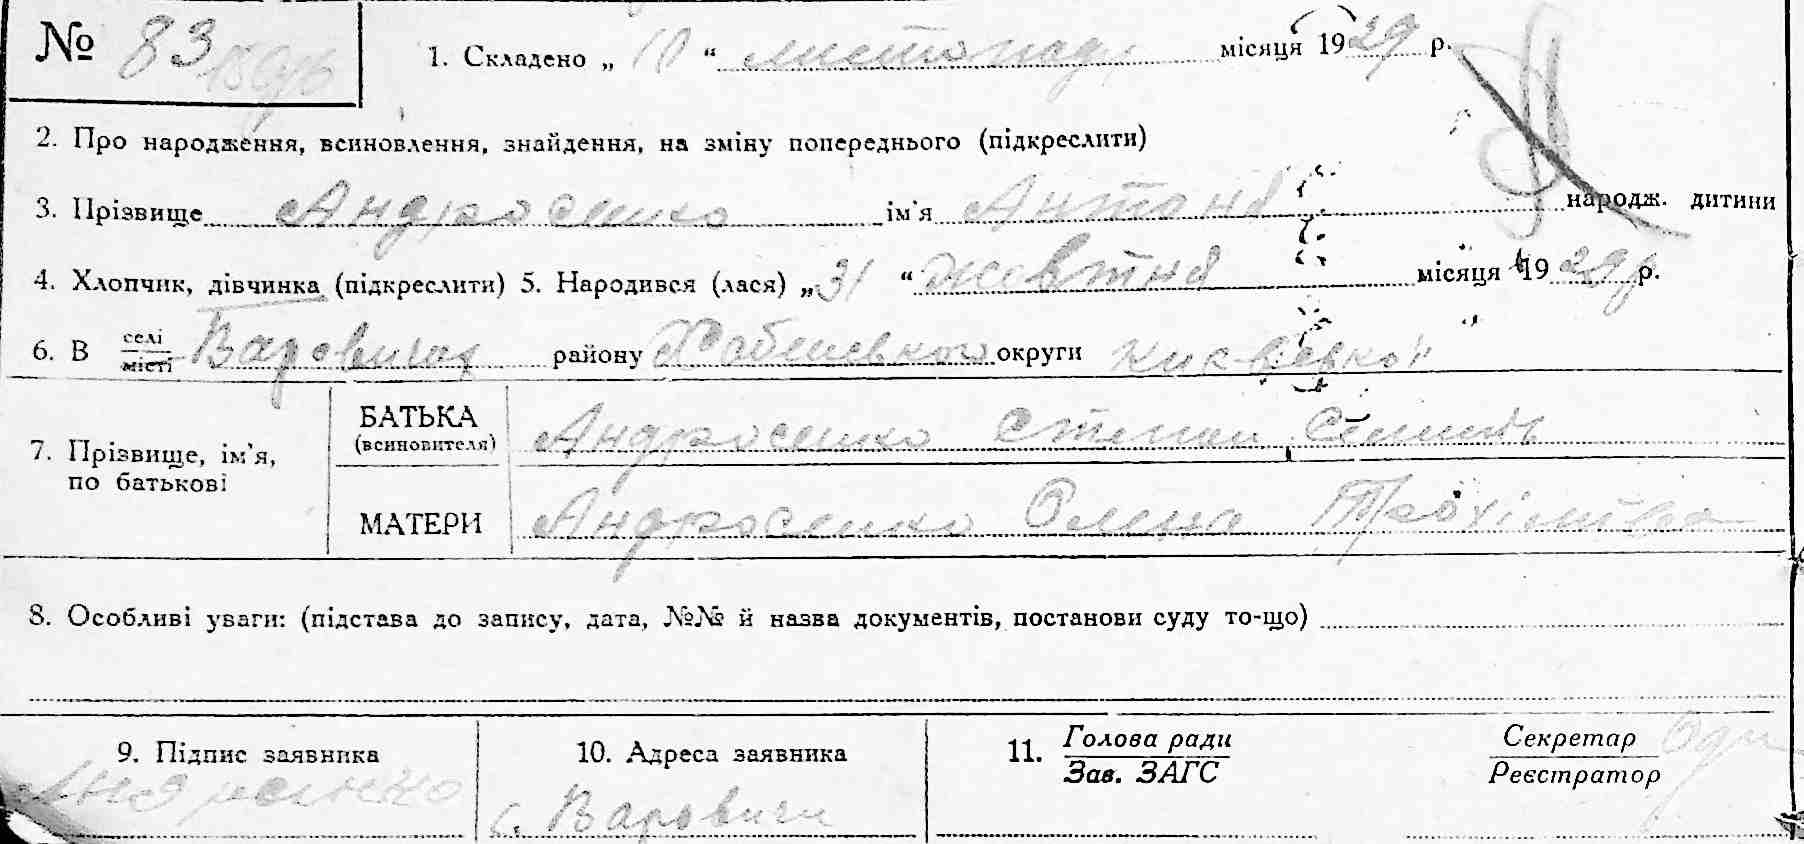 № 83
1. Складено „ 10 “ листопада місяця 1929 р.
2. Про народження, всиновлення, знайдення, на зміну попереднього (підкреслити)
3. Прізвище Андросенко ім'я Антоня народж. дитини
4. Хлопчик, дівчинка (підкреслити) 5. Народився (лася) „31 “ жовтня місяця 1929 р.
6. В селі/місті Варовичах району Хабенського округи Київської
7. Прізвище, ім'я, по батькові
БАТЬКА (всиновителя) Андросенко Степан
МАТЕРИ Андросенко Олена Трохімівна
8. Особливі уваги: (підстава до запису, дата, №№ й назва документів, постанови суду то-що)
9. Підпис заявника
Андросенко
10. Адреса заявника
с. Варовичи
11. Голова ради
Зав. ЗАГС
Секретар
Реєстратор